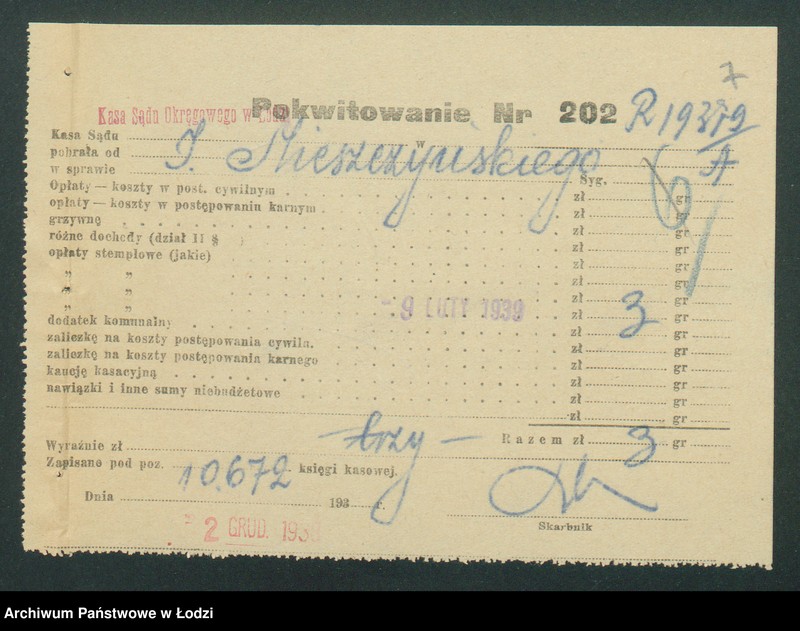 Kasa Sądu Okręgowego w Łodzi
Pokwitowanie Nr 202
Kasa Sądu w
pobrała od J. Mieszczyńskiego
w sprawie Syg.
Opłaty — koszty w post. cywilnym zł gr
opłaty — koszty w postępowaniu karnym zł gr
grzywnę zł gr
różne dochody (dział II § ) zł gr
opłaty stemplowe (jakie) zł gr
„ „ zł gr
„ „ zł gr
„ „ zł 3 gr
- 9 LUTY 1939
dodatek komunalny zł gr
zaliczkę na koszty postępowania cywiln. zł gr
zaliczkę na koszty postępowania karnego zł gr
kaucję kasacyjną zł gr
nawiązki i inne sumy niebudżetowe zł gr
zł gr
Wyraźnie zł — trzy — Razem zł 3 gr
Zapisano pod poz. 10.672 księgi kasowej.
Dnia 193 r.
Skarbnik
2 GRUD. 193
Archiwum Państwowe w Łodzi